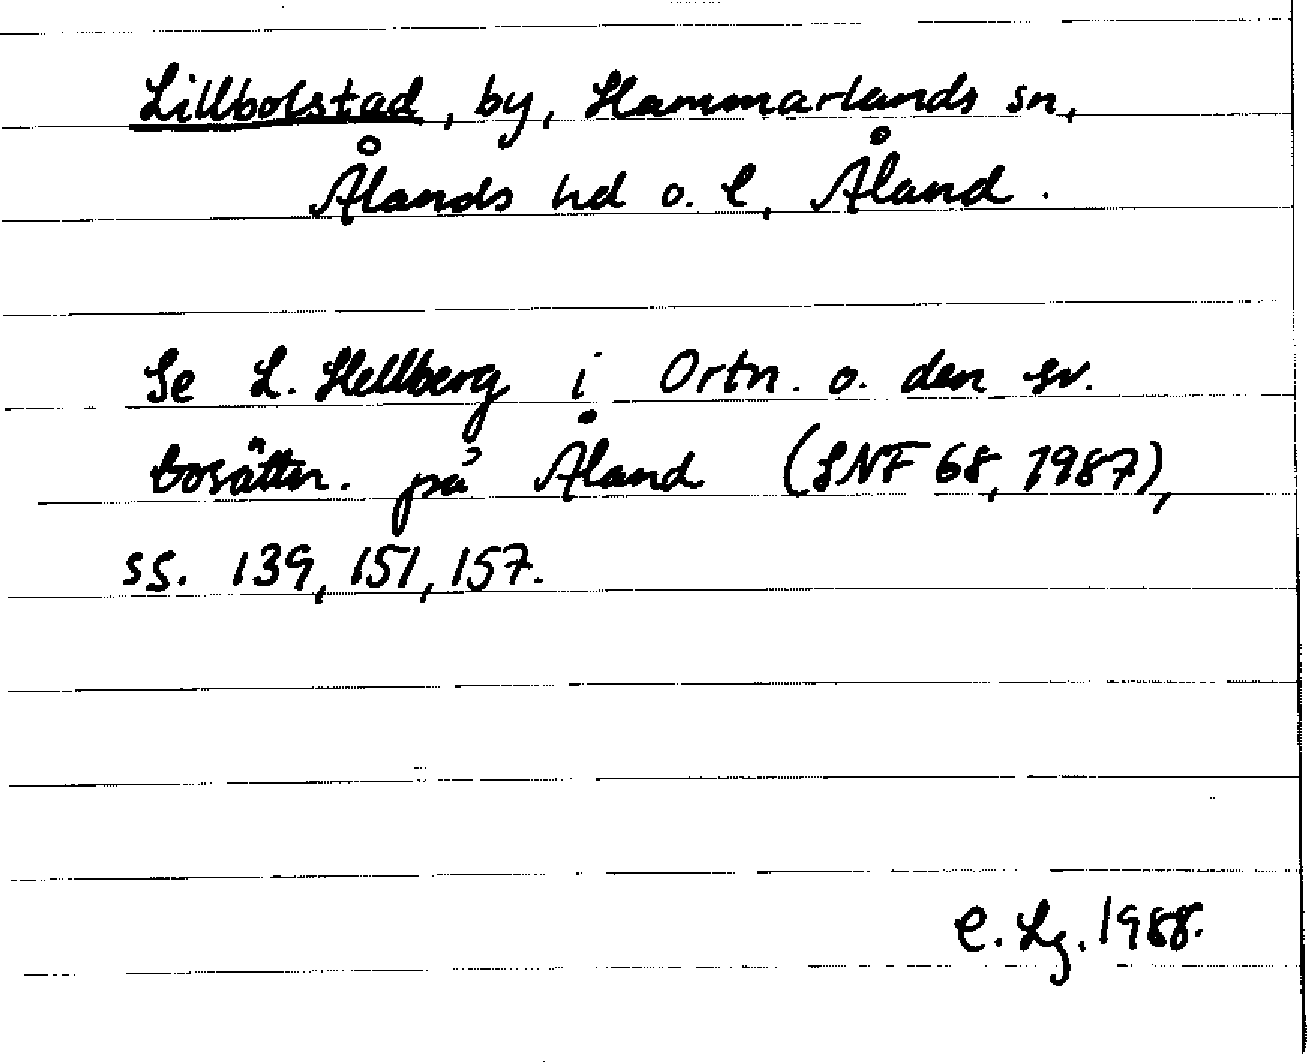 Lillbolstad, by, Hammarlands sn,
Ålands hd o. l, Åland.
Se L. Hellberg i Ortn. o. den sv.
bosättn. på Åland (SNF 68, 1987),
ss. 139, 151, 157.
C. Lg. 1988.